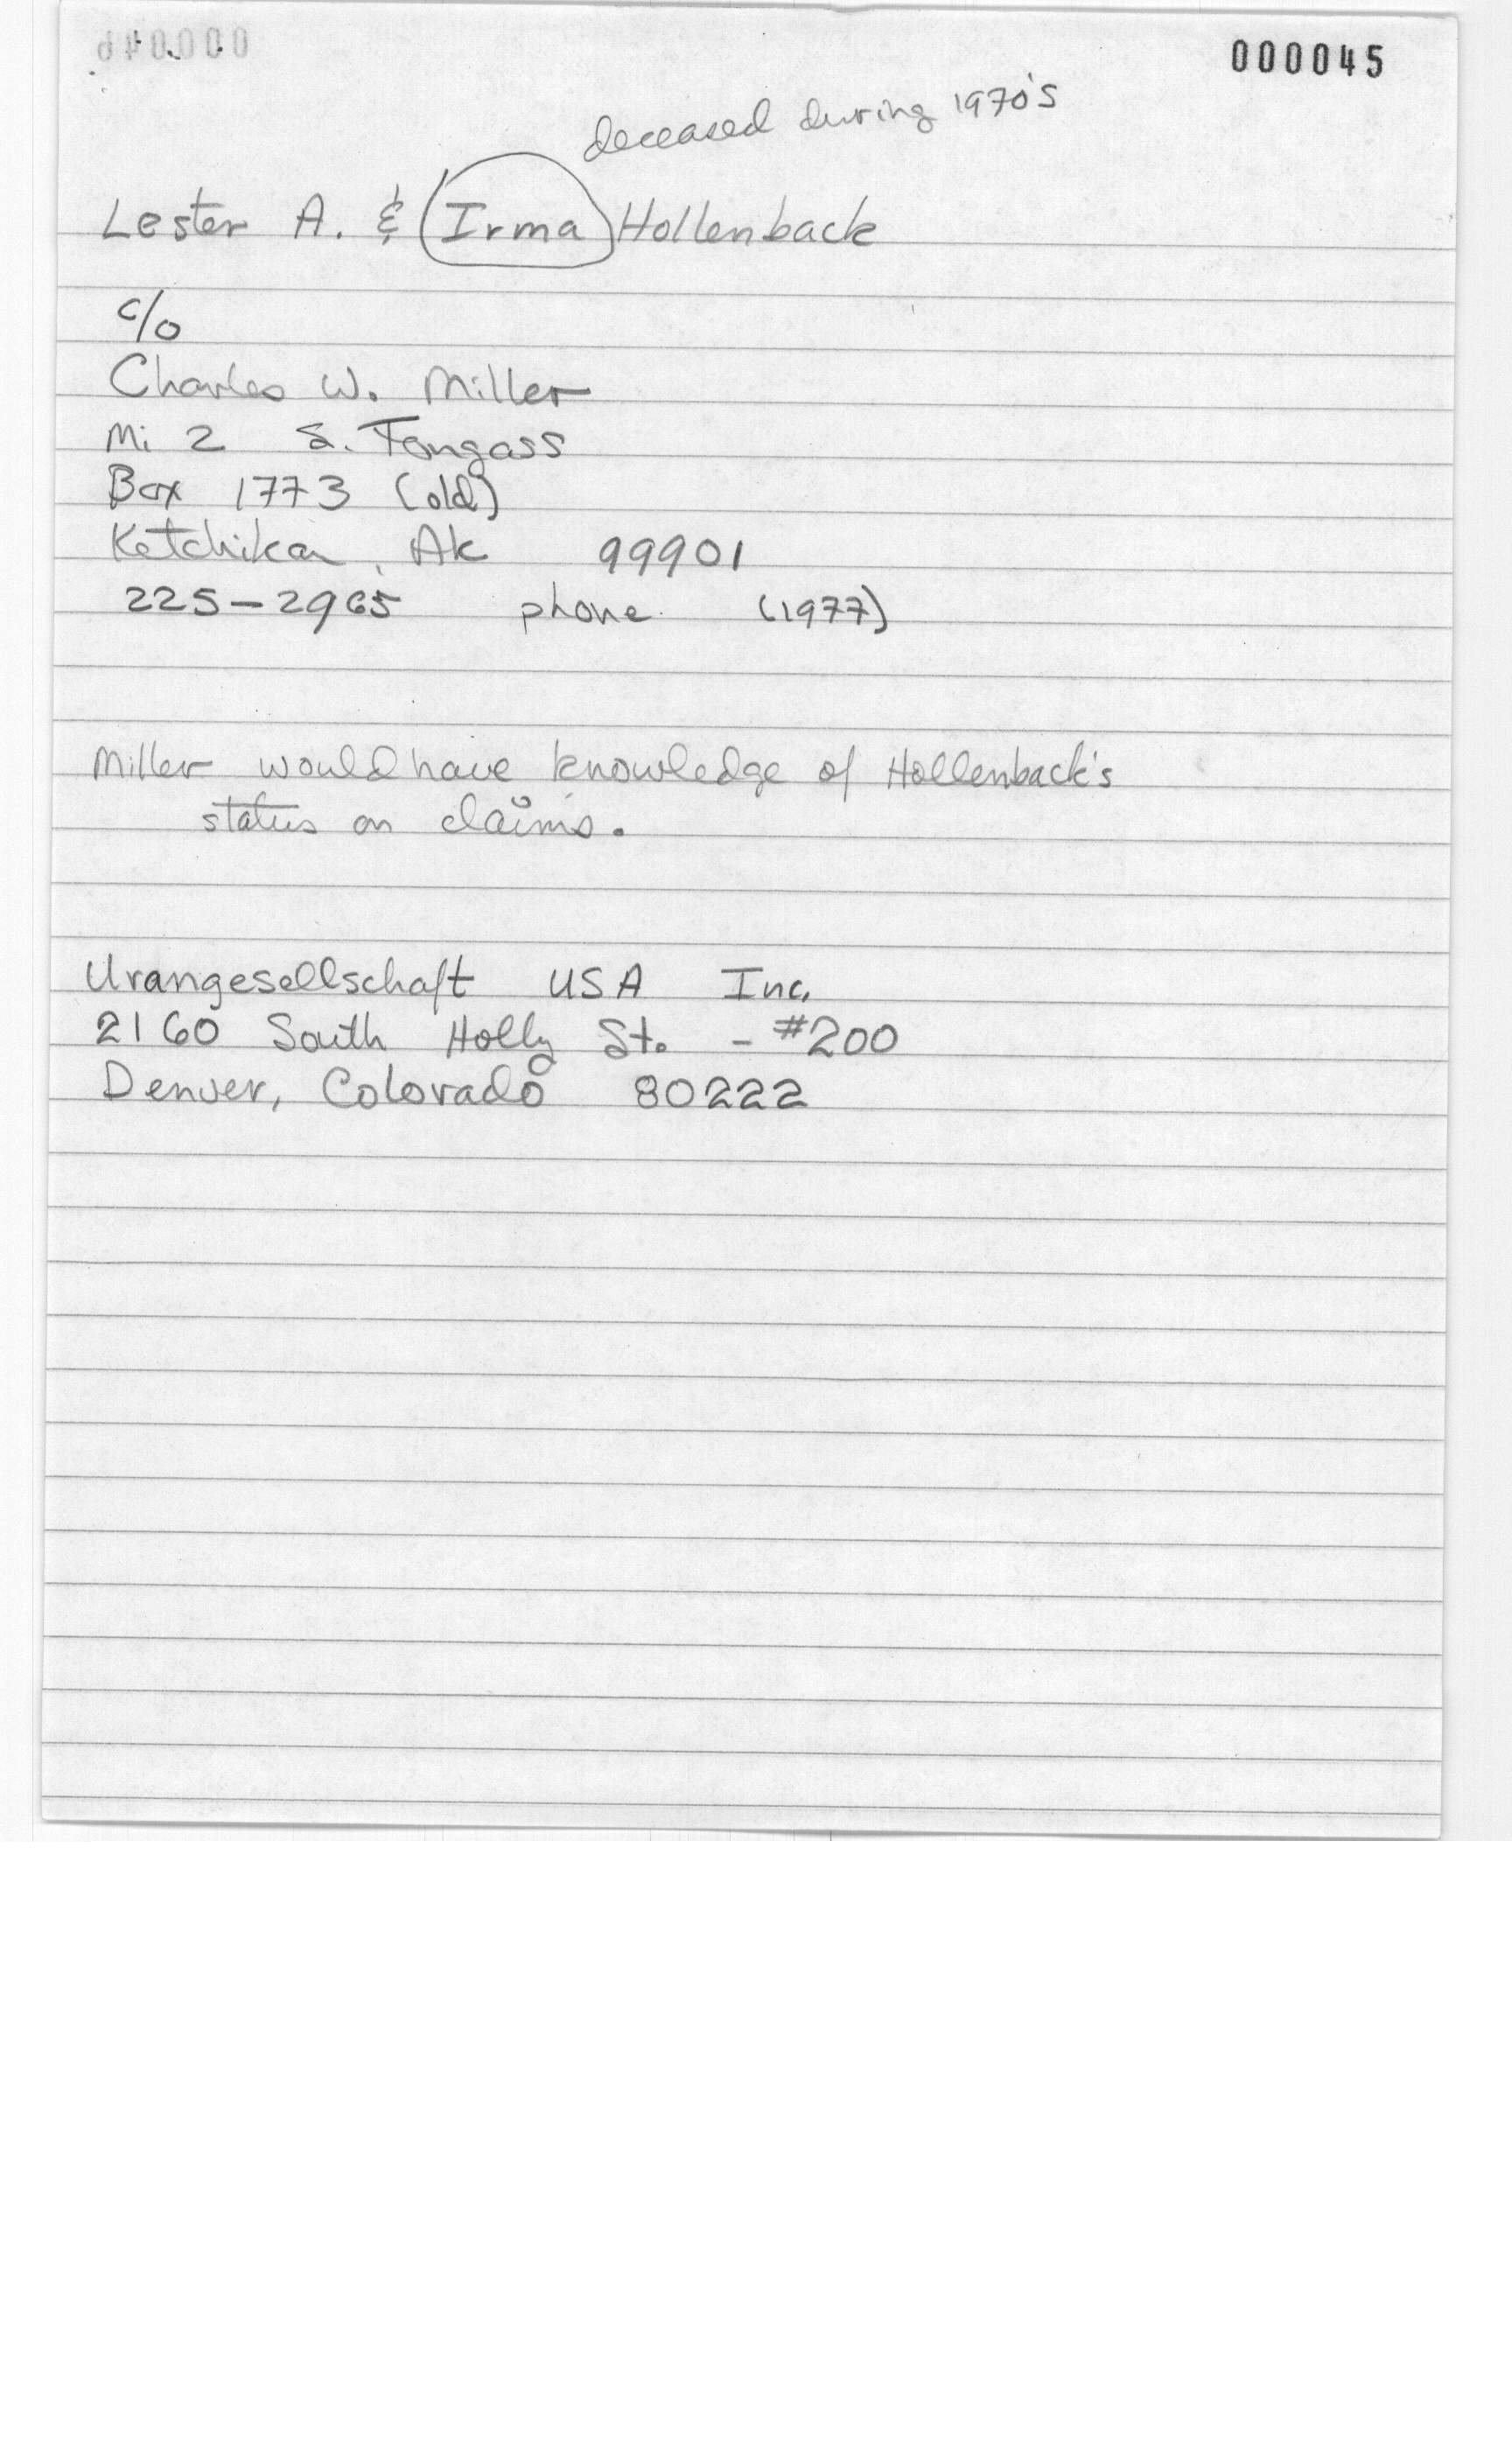 000045
deceased during 1970's
Lester A. & Irma Hollenback
c/o
Charles W. Miller
Mi 2 S. Tongass
Box 1773 (old)
Ketchikan, Ak 99901
225-2965 phone (1977)
Miller would have knowledge of Hollenback's
status on claims.
Urangesellschaft USA Inc.
2160 South Holly St. - #200
Denver, Colorado 80222